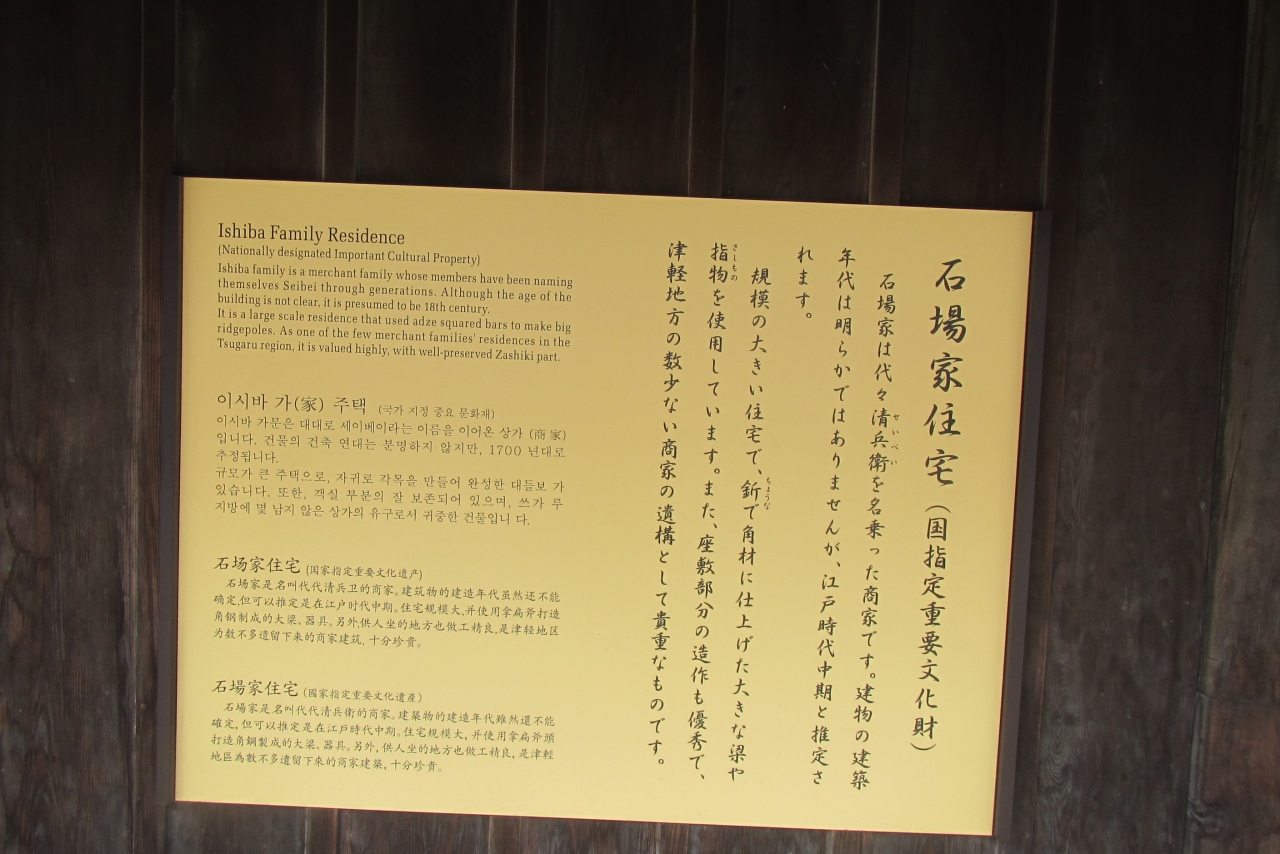 石場家住宅（国指定重要文化財）
石場家は代々清兵衛を名乗った商家です。建物の建築
せいべい
年代は明らかではありませんが、江戸時代中期と推定さ
れます。
規模の大きい住宅で、釿で角材に仕上げた大きな梁や
ちょうな
指物を使用しています。また、座敷部分の造作も優秀で、
さしもの
津軽地方の数少ない商家の遺構として貴重なものです。
Ishiba Family Residence
(Nationally designated Important Cultural Property)
Ishiba family is a merchant family whose members have been naming
themselves Seibei through generations. Although the age of the
building is not clear, it is presumed to be 18th century.
It is a large scale residence that used adze squared bars to make big
ridgepoles. As one of the few merchant families' residences in the
Tsugaru region, it is valued highly, with well-preserved Zashiki part.
이시바 가(家) 주택 (국가 지정 중요 문화재)
이시바 가문은 대대로 세이베이라는 이름을 이어온 상가 (商家)
입니다. 건물의 건축 연대는 분명하지 않지만, 1700 년대로
추정됩니다.
규모가 큰 주택으로, 자귀로 각목을 만들어 완성한 대들보 가
있습니다. 또한, 객실 부분의 잘 보존되어 있으며, 쓰가 루
지방에 몇 남지 않은 상가의 유구로서 귀중한 건물입니 다.
石场家住宅 (国家指定重要文化遗产)
石场家是名叫代代清兵卫的商家。建筑物的建造年代虽然还不能
确定,但可以推定是在江户时代中期。住宅规模大,并使用拿扁斧打造
角钢制成的大梁、器具。另外,供人坐的地方也做工精良,是津轻地区
为数不多遗留下来的商家建筑,十分珍贵。
石場家住宅 (國家指定重要文化遺産)
石場家是名叫代代清兵衛的商家。建築物的建造年代雖然還不能
確定,但可以推定是在江戶時代中期。住宅規模大,并使用拿扁斧頭
打造角鋼製成的大梁、器具。另外,供人坐的地方也做工精良,是津輕
地區為數不多遺留下來的商家建築,十分珍貴。